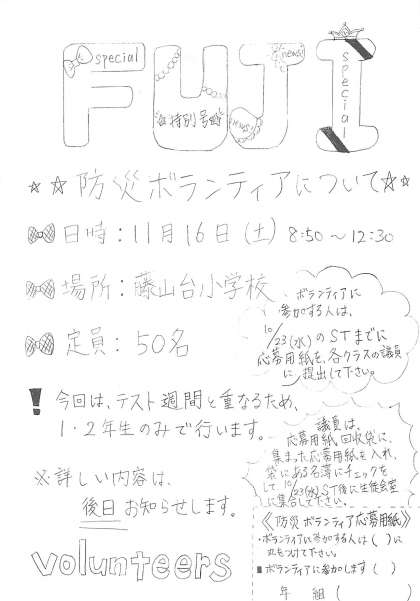 special
FUJI
news!
special
特別号
news!
☆☆防災ボランティアについて☆☆
日時：11月16日（土）8:50～12:30
場所：藤山台小学校
定員：50名
ボランティアに
参加する人は、
10/23(水)のSTまでに
応募用紙を、各クラスの議員
に提出して下さい。
! 今回は、テスト週間と重なるため、
1・2年生のみで行います。
議員は、
応募用紙回収袋に、
集まった応募用紙を入れ、
袋にある名簿にチェックを
して10/23(水)ST後に生徒会室
に集合して下さい。
※詳しい内容は、
後日お知らせします。
volunteers
《防災ボランティア応募用紙》
・ボランティアに参加する人は（ ）に
丸をつけて下さい。
■ボランティアに参加します（ ）
年 組（